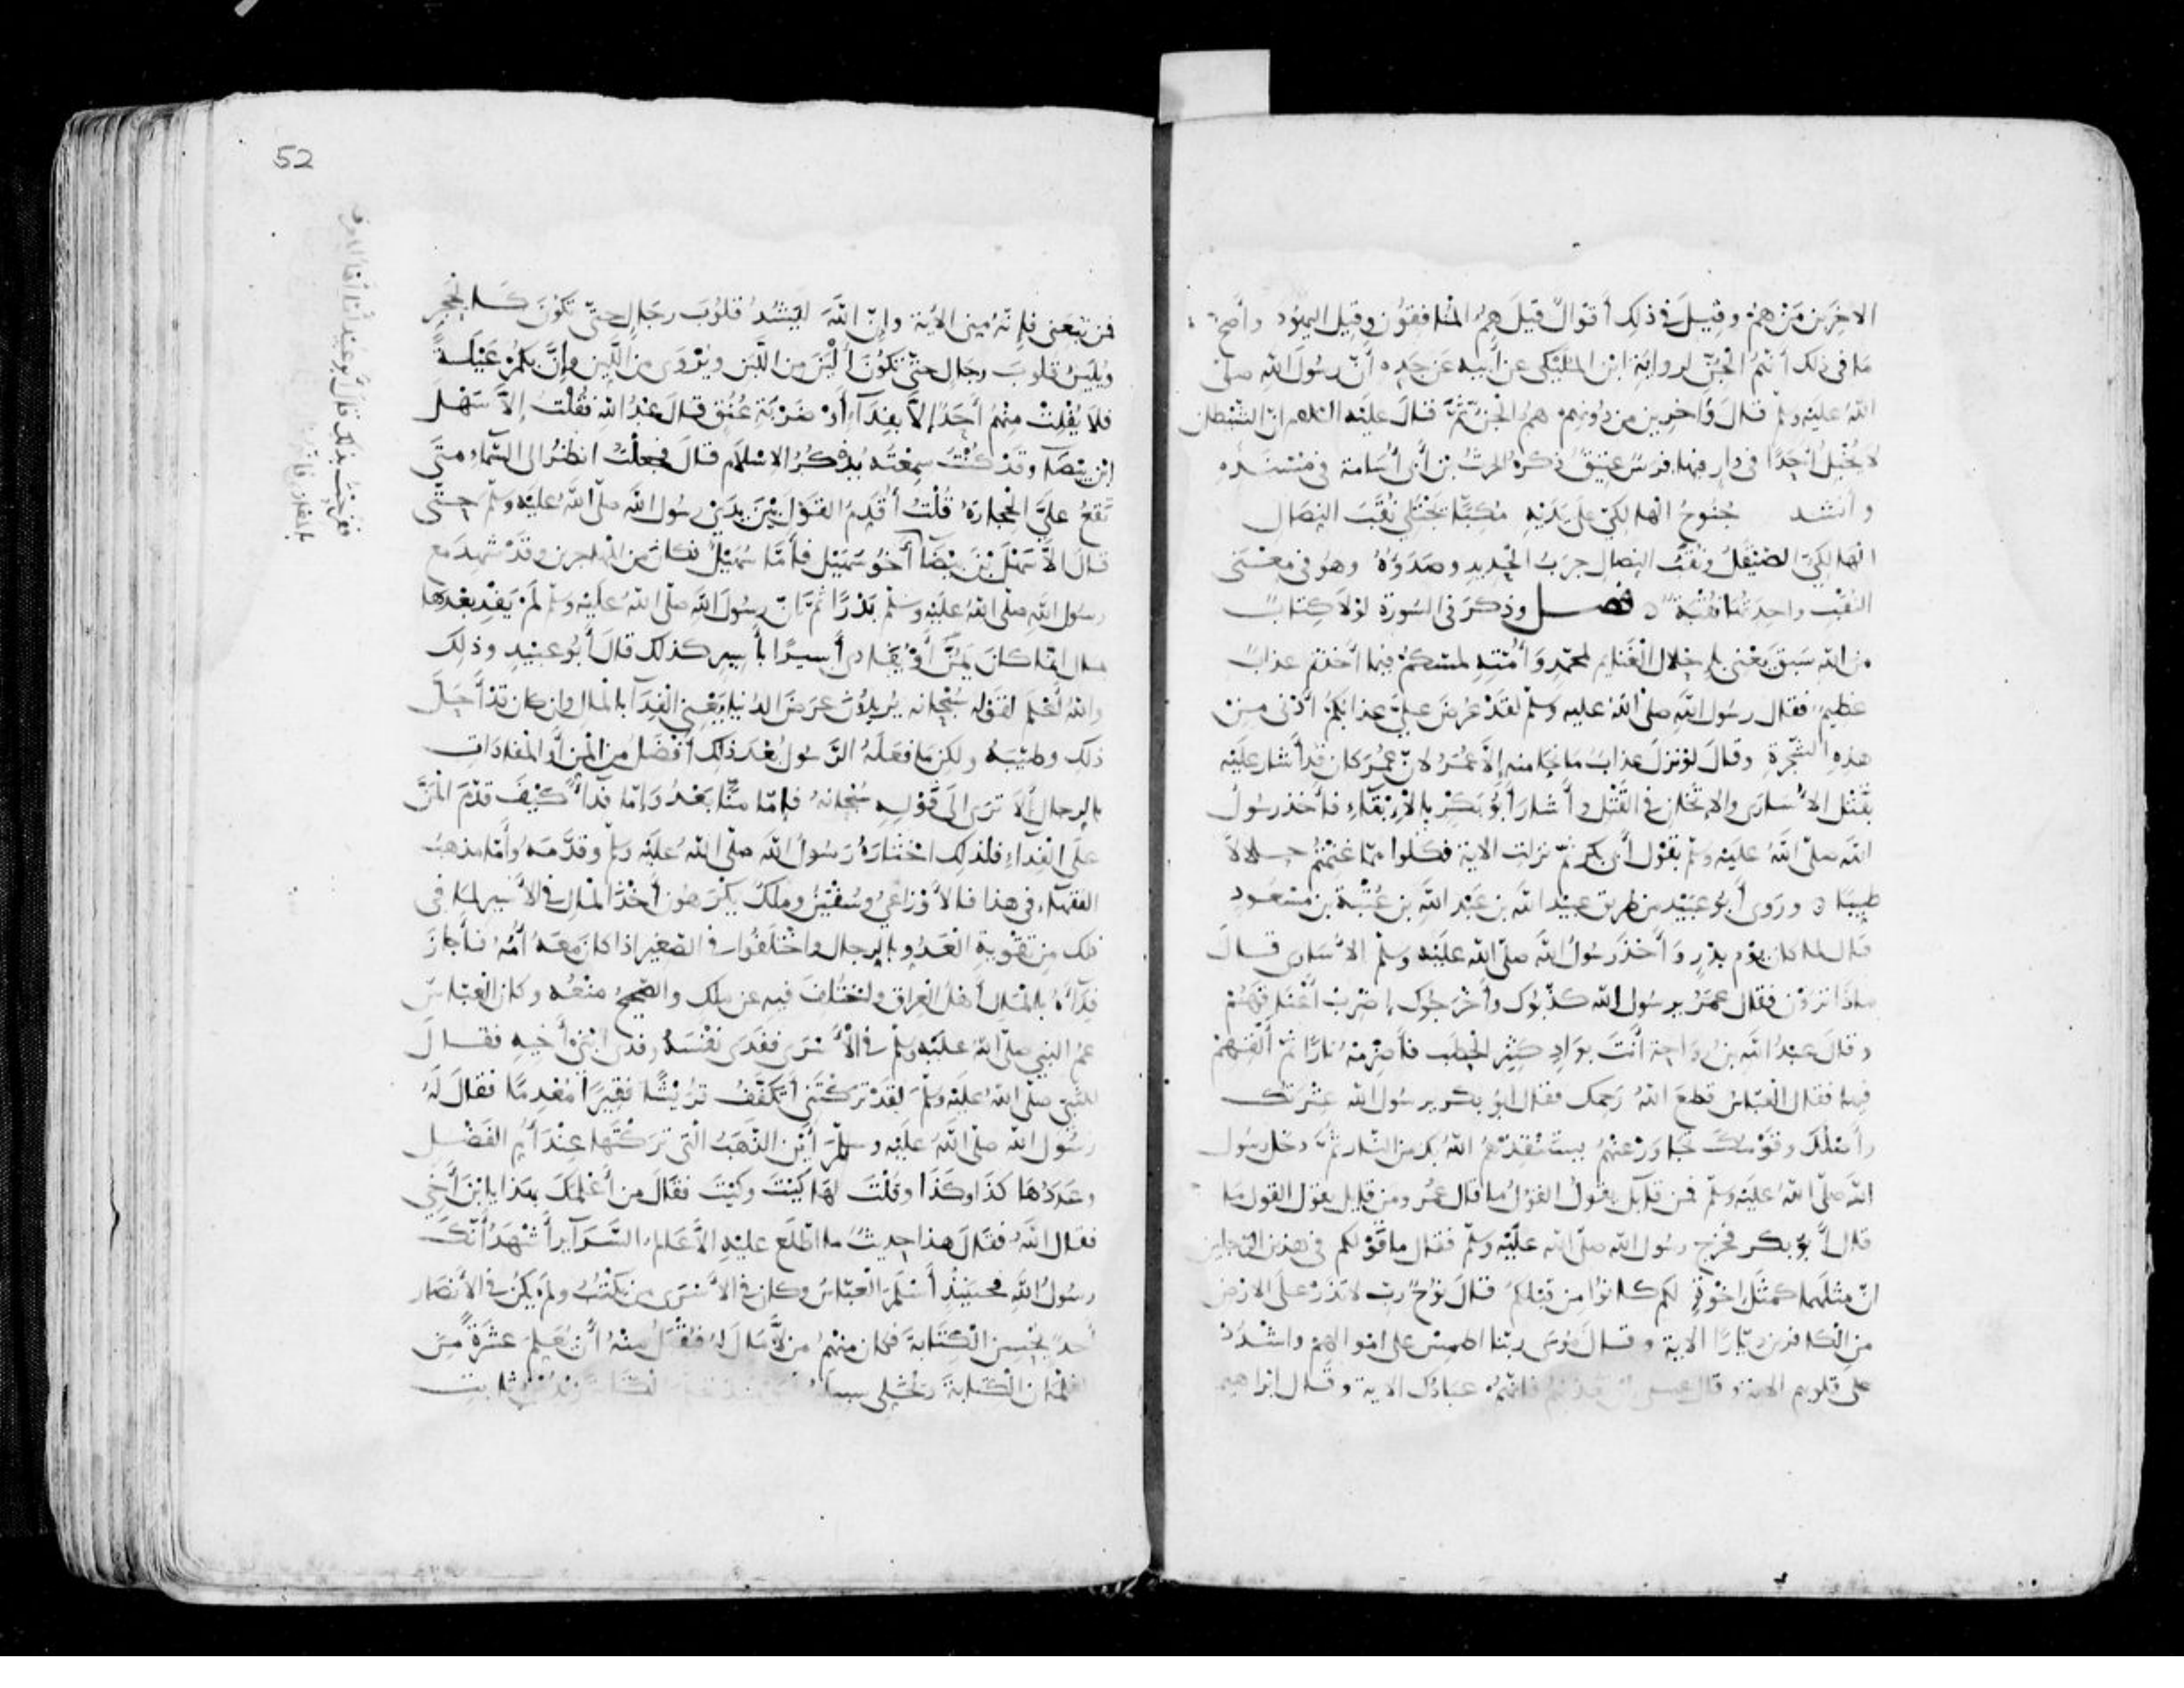 الاخرين من هم وقيل في ذلك أقوال قيل هم المنافقون وقيل اليهود وأصح
ما في ذلك أنهم الجن لرواية ابن المليكي عن أبيه عن جده أن رسول الله صلى
الله عليه وسلم قال وآخرين من دونهم هم الجن ثم قال عليه السلام ان الشيطان
لا يخبل أحدا في دار فيها فرس عتيق ذكره الحرث بن أبي أسامة في مسنده
وأنشد جنوح الهالكي على يديه مكبا يجتلي نقب النصال
الهالكي الصيقل ونقب النصال جرب الحديد وصدؤه وهو في معنى
النقب واحدتها نقبة ه فصل وذكر في السورة لولا كتاب
من الله سبق يعني باحلال الغنائم لمحمد وأمته لمسكم فيما أخذتم عذاب
عظيم فقال رسول الله صلى الله عليه وسلم لقد عرض علي عذابكم أدنى من
هذه الشجرة وقال لو نزل عذاب ما نجا منه إلا عمر لان عمر كان قد أشار عليه
بقتل الأسارى والاثخان في القتل وأشار أبو بكر بالإبقاء فأخذ رسول
الله صلى الله عليه وسلم بقول أبي بكر ثم نزلت الاية فكلوا مما غنمتم حلالا
طيبا ه وروى أبو عبيد من طريق عبيد الله بن عبد الله بن عتبة بن مسعود
قال لما كان يوم بدر وأخذ رسول الله صلى الله عليه وسلم الأسارى قال
ماذا ترون فقال عمر يرسول الله كذبوك وأخرجوك اضرب أعناقهم
وقال عبد الله بن رواحة أنت بواد كثير الحطب فأضرمه نارا ثم ألقهم
فيها فقال العباس قطع الله رحمك فقال ابو بكر يرسول الله عترتك
وأصلك وقومك تجاوز عنهم يستنقذهم الله بك من النار ثم دخل رسول
الله صلى الله عليه وسلم فمن قائل يقول القول ما قال عمر ومن قائل يقول القول ما
قال أبو بكر فخرج رسول الله صلى الله عليه وسلم فقال ما قولكم في هذين الرجلين
ان مثلهما كمثل اخوة لكم كانوا من قبلكم قال نوح رب لا تذر على الارض
من الكافرين ديارا الاية وقال موسى ربنا اطمس على اموالهم واشدد
على قلوبهم الاية وقال عيسى ان تعذبهم فانهم عبادك الاية وقال ابراهيم
52
فمن تبعني فإنه مني الاية وإن الله ليشدد قلوب رجال حتى تكون كالحجر
ويلين قلوب رجال حتى تكون ألين من اللين ويروى من اللبن وإن بكم عيلة
فلا يفلت منهم أحد إلا بفداء أو ضربة عنق قال عبد الله فقلت إلا سهل
ابن بيضا وقد كنت سمعته يذكر الاسلام قال فجعلت انظر الى السماء متى
تقع علي الحجارة قلت أقدم القول بين يدي رسول الله صلى الله عليه وسلم حتى
قال الا سهل بن بيضا أخو سهيل فأما سهيل فكان من المهاجرين وقد شهد مع
رسول الله صلى الله عليه وسلم بدرا ثم ان رسول الله صلى الله عليه وسلم لم يفد بعدها
بمال انما كان يمن أو يفادي أسيرا بأسير كذلك قال أبو عبيد وذلك
والله أعلم لقوله سبحانه يريدون عرض الدنيا يعني الفدا بالمال وان كان قد أحل
ذلك وطيبه ولكن ما فعله الرسول بعد ذلك أفضل من المن أو المفادات
بالرجال ألا ترى الى قوله سبحانه فإما منا بعد وإما فداء كيف قدم المن
على الفداء فلذلك اختاره رسول الله صلى الله عليه وسلم وقدمه وأما مذهب
الفقهاء في هذا فالأوزاعي وسفين وملك يكرهون أخذ المال في الأسير لما في
ذلك من تقوية العدو بالرجال واختلفوا في الصغير اذا كان معه أمه فأجاز
فداءه بالمال أهل العراق واختلف فيه عن ملك والصحيح منعه وكان العباس
عم النبي صلى الله عليه وسلم في الأسرى ففدى نفسه وفدى ابني أخيه فقال
للنبي صلى الله عليه وسلم لقد تركتني أتكفف قريشا فقيرا معدما فقال له
رسول الله صلى الله عليه وسلم أين الذهب التي تركتها عند أم الفضل
وعددها كذا وكذا وقلت لها كيت وكيت فقال من أعلمك بهذا يابن أخي
فقال الله فقال هذا حديث ما اطلع عليه الا عالم السرآير أشهد أنك
رسول الله فحينئذ أسلم العباس وكان في الأسرى من يكتب ولم يكن في الأنصار
أحد يحسن الكتابة فكان منهم من لا مال له فيقبل منه أن يعلم عشرة من
الغلمان الكتابة ويخلي سبيله زيد بن ثابت
قال أبو عبيد